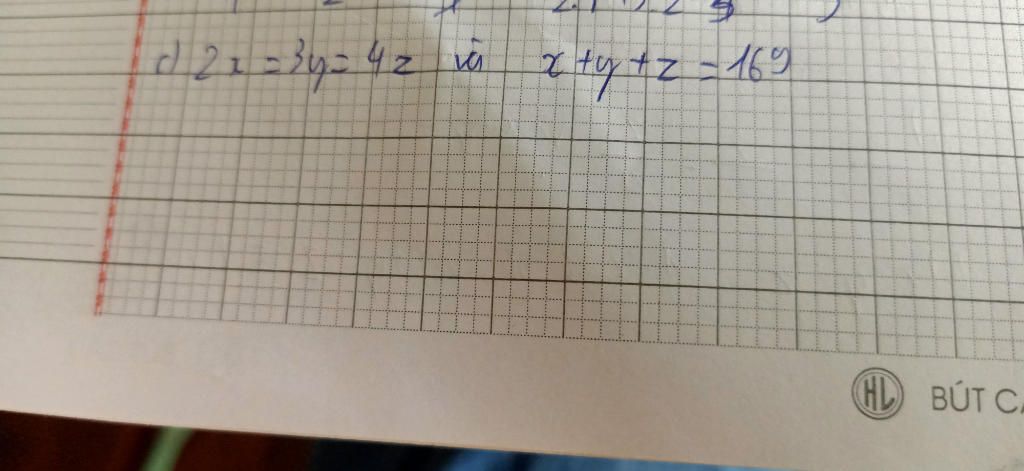 c) 2x = 3y = 4z và x + y + z = 169
HL BÚT